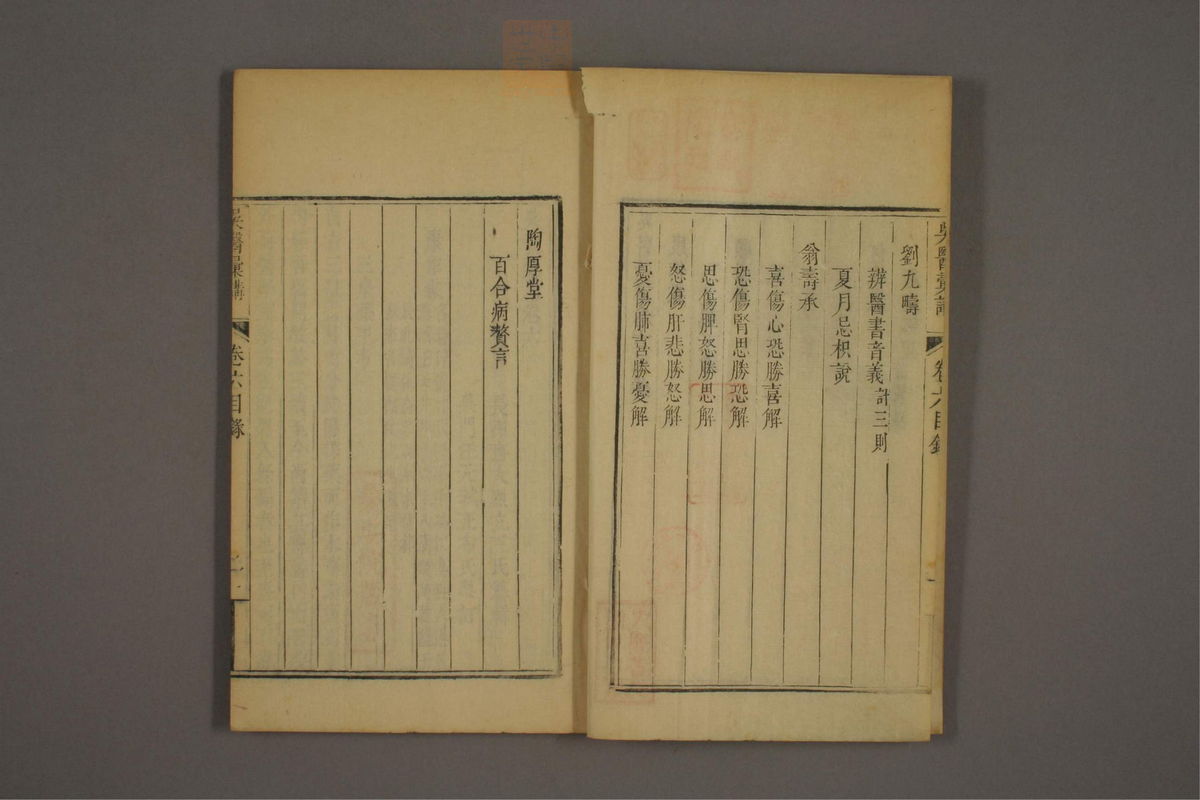 吳醫彙講 卷六目錄
劉九疇
辨醫書音義計三則
夏月忌枳說
翁壽承
喜傷心恐勝喜解
恐傷腎思勝恐解
思傷脾怒勝思解
怒傷肝悲勝怒解
憂傷肺喜勝憂解
陶厚堂
百合病贅言
吳醫彙講 卷六目錄